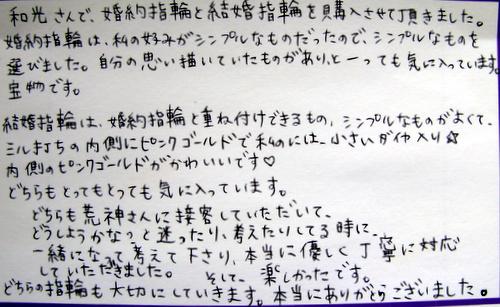 和光さんで、婚約指輪と結婚指輪を購入させて頂きました。
婚約指輪は、私の好みがシンプルなものだったので、シンプルなものを
選びました。自分の思い描いていたものがありとーっても気に入っています。
宝物です。
結婚指輪は、婚約指輪と重ね付けできるもの、シンプルなものがよくて、
ミル打ちの内側にピンクゴールドで私のには、小さいダイヤ入り☆
内側のピンクゴールドがかわいいです♡
どちらもとってもとっても気に入っています。
どちらも荒神さんに接客していただいて、
どうしようかなっと迷ったり、考えたりしてる時に、
一緒になって考えて下さり、本当に優しく丁寧に対応
していただきました。 そして、楽しかったです。
どちらの指輪も大切にしていきます。本当にありがとうございました。